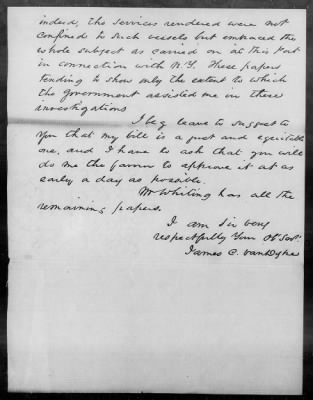 indeed, the services rendered were not
confined to such vessels but embraced the
whole subject as carried on at this Port
in connection with N.Y. These papers
tending to show only the extent to which
the government assisted me in these
investigations
I beg leave to suggest to
you that my bill is a just and equitable
one, and I have to ask that you will
do me the favor to approve it at as
early a day as possible.
Mr Whiting has all the
remaining papers.
I am Sir very
respectfully Your Obt Servt
James C. VanDyke